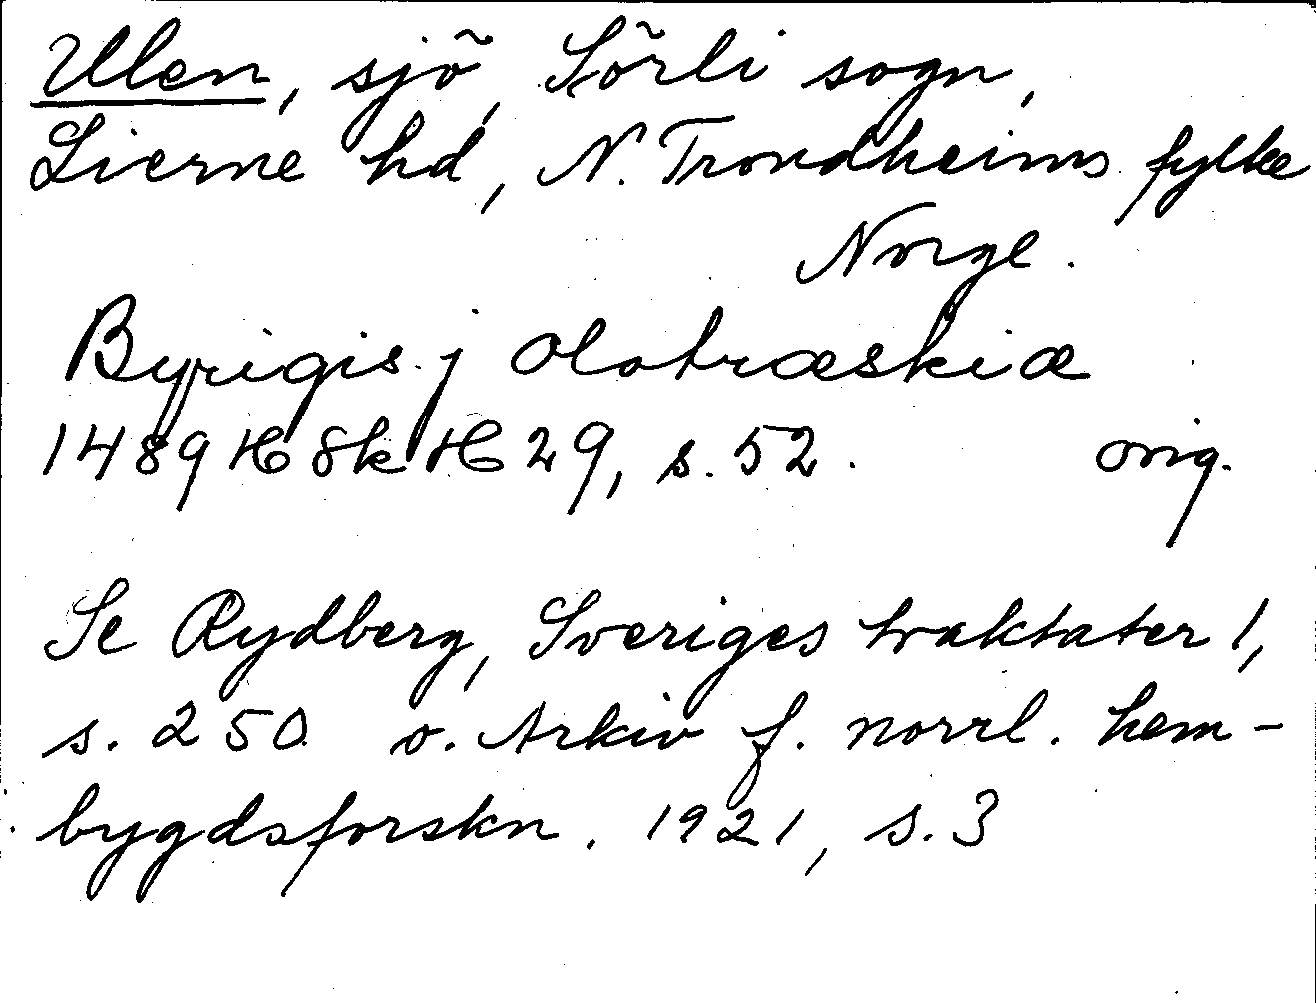 Ulen, sjö, Sörli sogn,
Lierne hd, N. Trondheims fylke
Norge.
Byrigis j Olotræskiæ
1489 HSk H 29, s. 52. orig.
Se Rydberg, Sveriges traktater 1,
s. 250 o. Arkiv f. norrl. hem-
bygdsforskn. 1921, s. 3